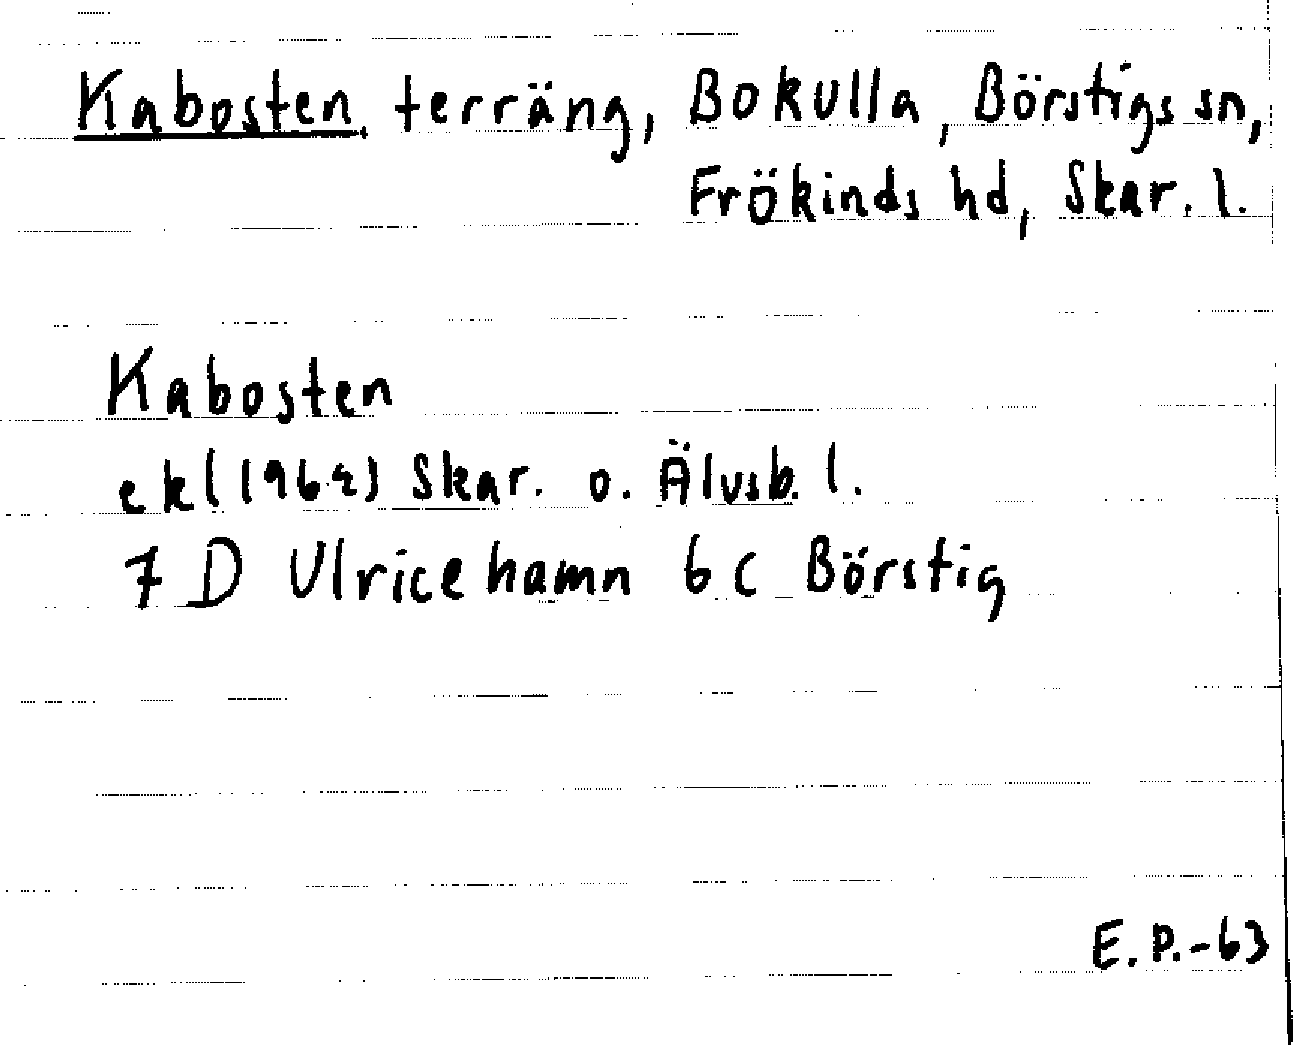 Kabosten, terräng, Bokulla, Börstigs sn,
Frökinds hd, Skar. l.
Kabosten
ek (1962) Skar. o. Älvsb. l.
7 D Ulricehamn 6 c Börstig
E.P.-63